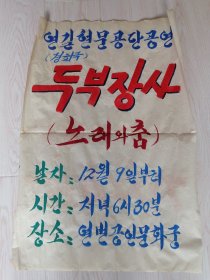 연길현문공단공연
두부장사
(노래와춤)
날자: 12월 9일부터
시간: 저녁 6시 30분
장소: 연변공인문화궁